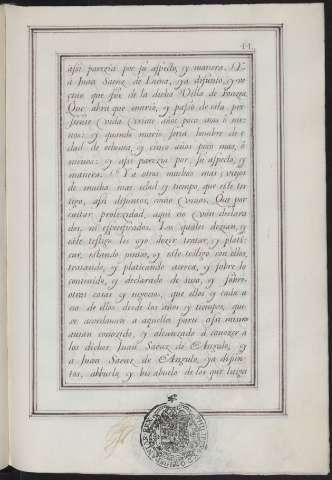 11
assi parezia por su aspecto, y manera. Y
á Juan Saenz de Luna, ya difunto, y ve
zino que fue de la dicha Villa de
Que abrá que murió, y passó de esta pre
sente vida veinte años poco mas ó me
nos: y quando murió seria hombre de e
dad de ochenta, y cinco años poco mas, ó
menos: y assi parezia por su aspecto, y
manera. Y a otros muchos mas viejos
de mucha mas edad y tiempo, que este tes
tigo, assi difuntos, como vivos. Que por
evitar prolexidad, aqui no van declara
dos, ni especificados. Los quales dezian, y
este testigo les oyó dezir tratar, y plati
car, estando juntos, y este testigo con ellos,
tratando, y platicando acerca, y sobre lo
contenido, y declarado de suso, y sobre
otras cosas y negocios, que ellos y cada u
no de ellos desde los años y tiempos, que
se acordavan a aquella parte assi mismo
avian conozido, y alcanzado á conozer a
los dichos Juan Saenz de Angulo, y
a Juan Saenz de Angulo, ya difun
tos, abbuelo, y bis abuelo de los que litiga